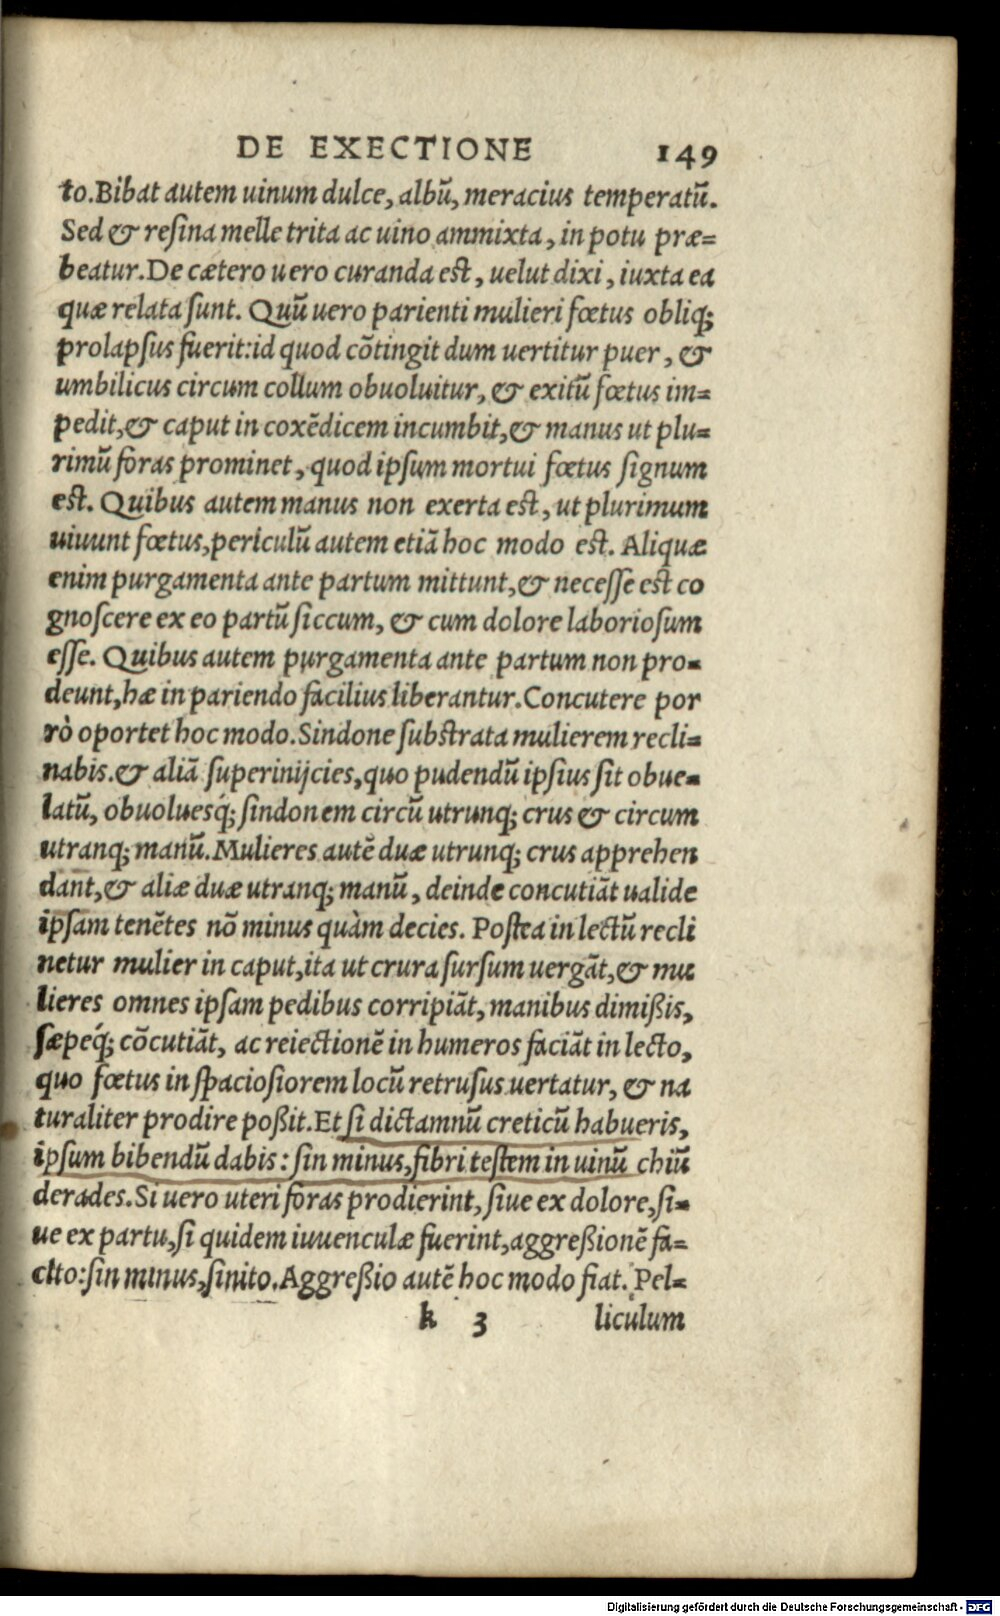 DE EXECTIONE 149
to. Bibat autem uinum dulce, albū, meracius temperatū.
Sed & resina melle trita ac uino ammixta, in potu præ=
beatur. De cætero uero curanda est, uelut dixi, iuxta ea
quæ relata sunt. Quū uero parienti mulieri fœtus obliq;
prolapsus fuerit: id quod cōtingit dum uertitur puer, &
umbilicus circum collum obuoluitur, & exitū fœtus im=
pedit, & caput in coxēdicem incumbit, & manus ut plu=
rimū foras prominet, quod ipsum mortui fœtus signum
est. Quibus autem manus non exerta est, ut plurimum
uiuunt fœtus, periculū autem etiā hoc modo est. Aliquæ
enim purgamenta ante partum mittunt, & necesse est co
gnoscere ex eo partū siccum, & cum dolore laboriosum
esse. Quibus autem purgamenta ante partum non pro=
deunt, hæ in pariendo facilius liberantur. Concutere por
rò oportet hoc modo. Sindone substrata mulierem recli=
nabis. & aliā superinijcies, quo pudendū ipsius sit obue=
latū, obuoluesq́; sindonem circū utrunq; crus & circum
utranq; manū. Mulieres autē duæ utrunq; crus apprehen
dant, & aliæ duæ utranq; manū, deinde concutiāt ualide
ipsam tenētes nō minus quàm decies. Postea in lectū recli
netur mulier in caput, ita ut crura sursum uergāt, & mu
lieres omnes ipsam pedibus corripiāt, manibus dimißis,
sæpeq́; cōcutiāt, ac reiectionē in humeros faciāt in lecto,
quo fœtus in spaciosiorem locū retrusus uertatur, & na
turaliter prodire poßit. Et si dictamnū creticū habueris,
ipsum bibendū dabis: sin minus, fibri testem in uinū chiū
derades. Si uero uteri foras prodierint, siue ex dolore, si=
ue ex partu, si quidem iuuenculæ fuerint, aggreßionē fa=
cito: sin minus, sinito. Aggreßio autē hoc modo fiat. Pel=
k 3 liculum
Digitalisierung gefördert durch die Deutsche Forschungsgemeinschaft - DFG